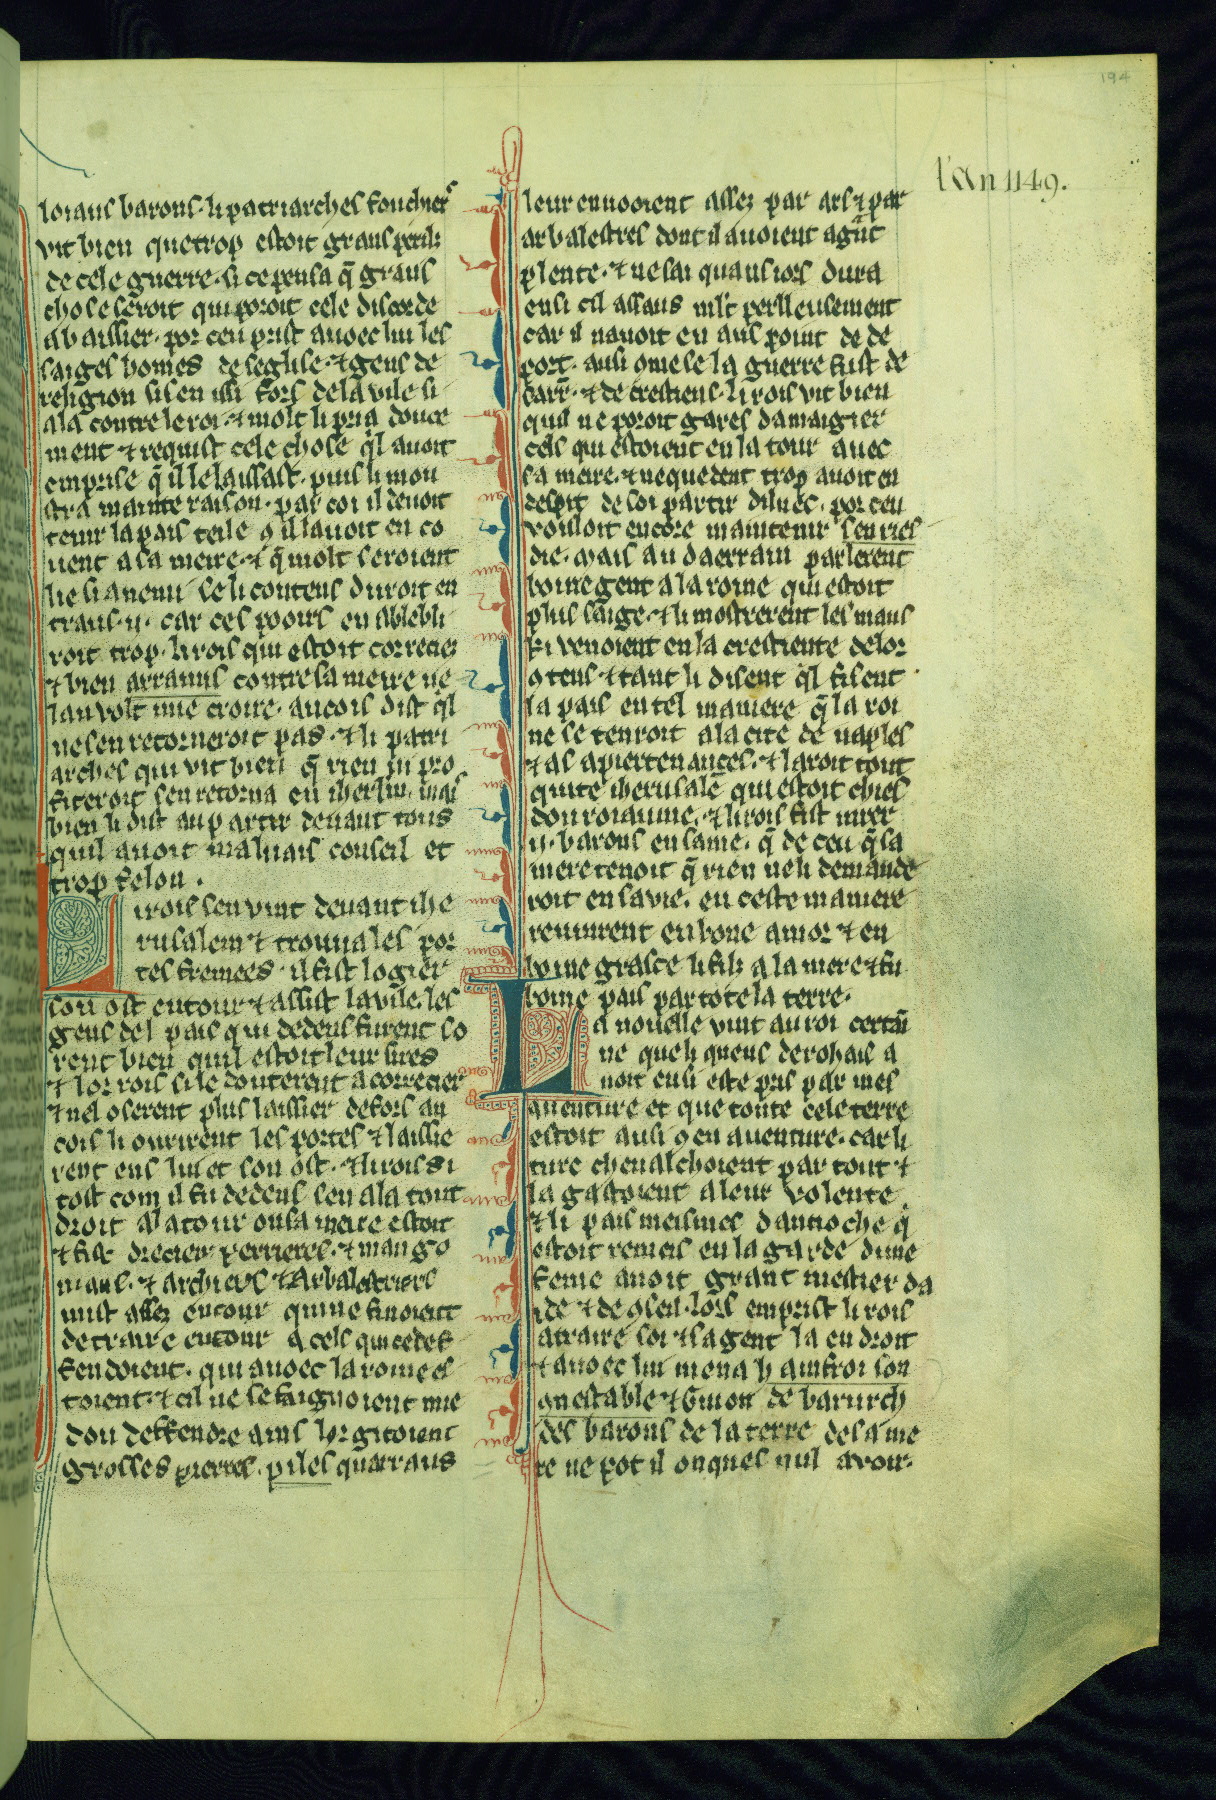 194
l'an 1149.
loiaus barons. li patriarches fouchiers
vit bien que trop estoit grans perilz
de cele guerre. si ce pensa q̄ grans
chose seroit qui poroit cele discorde
abaissier. por ceu prist avoec lui les
saiges homes de seglise. ⁊ gens de
religion si sen issi fors de la vile si
ala contre le roi. ⁊ molt li pria douce
ment ⁊ requist cele chose q̄l avoit
emprise q̄ il le laissast. puis li mon
stra mainte raison. par coi il devoit
tenir la pais teile 9 il lavoit en co
vent a sa meire. ⁊ q̄ molt seroient
lie si anemi se li contens duroit en
traus .ii. car ces pooirs en ableibli
roit trop. li rois qui estoit correcies
⁊ bien arramis contre sa meire ne
lan volt mie croire. ancois dist q̄l
ne sen retorneroit pas. ⁊ li patri
arches qui vit bien q̄ rien ni pro
fiteroit sen retorna en iherlm. mais
bien li dist au partir devant tous
quil avoit malvais conseil et
trop felon.
Li rois sen vint devant ihe
rusalem ⁊ trouva les por
tes fremees. il fist logier
son ost entour ⁊ assist la vile. les
gens del pais qui dedens furent so
rent bien quil estoit leur sires
⁊ lor rois si le douterent a correcier
⁊ nel oserent plus laissier defors an
cois li ovrirent les portes ⁊ laissie
rent ens lui et son ost. ⁊ li rois si
tost com il fu dedens sen ala tout
droit a la tour ou sa meire estoit
⁊ fist drecier perrieres. ⁊ mango
niaus. ⁊ archiers ⁊ arbalestriers
mist assez entour qui ne finoient
de traire entour a cels qui cedef
fendoient. qui avoec la roine es
toient. ⁊ cil ne se faignoient mie
dou deffendre ains lor gitoient
grosses pierres. piles quarraus
leur envooient assez par ars ⁊ par
arbalestres dont il avoient agūt
plente. ⁊ ne sai quans iors dura
ensi cil assaus ml't perilleusement
car il navoit en aus point de de
port. ausi 9me se la guerre fust de
sarr̄. ⁊ de crestiens. li rois vit bien
quil ne poroit gares damaigier
cels qui estoient en la tour avec
sa meire. ⁊ nequedent trop avoit en
despit de soi partir diluec. por ceu
vouloit encore maintenir sen ries
die. mais au daerrain parlerent
boine gent a la roine qui estoit
plus saige. ⁊ li mostrerent les maus
ki venoient en la crestiente de lor
9tens ⁊ tant li disent q̄l fisent
la pais en tel maniere q̄ la roi
ne se tenroit a la cite de naples
⁊ as apiertenances. ⁊ lairoit tout
quite iherusalē qui estoit chies
dou roiaume. ⁊ li rois fist iurer
.ii. barons en same. q̄ de ceu q̄ sa
mere tenoit q̄ rien ne li demande
roit en sa vie. en ceste maniere
revinrent en bone amor ⁊ en
boine grasce li filz a la mere ⁊ fu
boine pais par tote la terre.
La novelle vint au roi certai
ne que li queus de rohais a
voit ensi este pris par mes
aventure et que toute cele terre
estoit ausi 9 en aventure. car li
turc chevalchoient par tout ⁊
la gastoient a leur volente.
⁊ li pais meismes dantioche q̄
estoit remeis en la garde dune
feme avoit grant mestier da
ide ⁊ de 9seil. lors emprist li rois
a traire soi ⁊ sa gent la en droit
⁊ avoec lui mena h ainfroi son
9nestable ⁊ Guion de barurch
des barons de la terre de sa me
re ne pot il onques nul avoir.